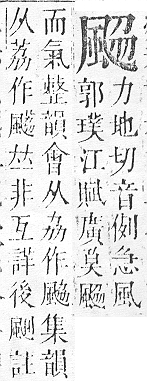 力地切音例急風
郭璞江賦廣莫
而氣整韻會从劦作䬅集韻
从荔作𠀤非互詳後颲註